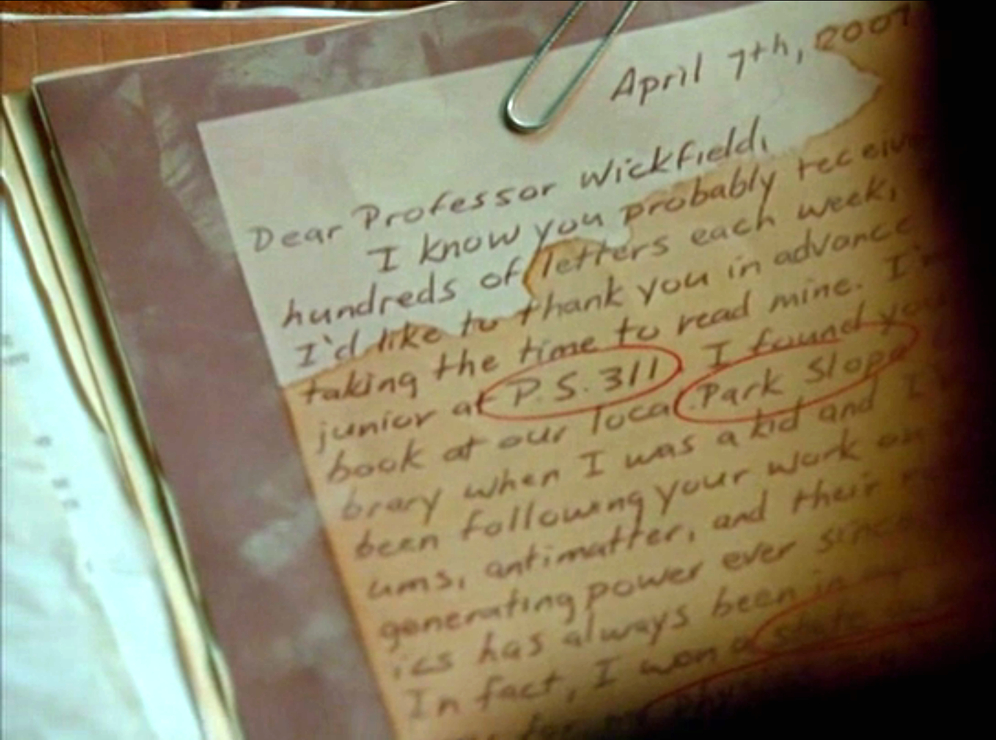 April 7th, 2007
Dear Professor Wickfield,
I know you probably receiv
hundreds of letters each week,
I'd like to thank you in advance
taking the time to read mine. I'm
junior at P.S. 311. I found you
book at our local Park Slope
brary when I was a kid and I
been following your work on
ums, antimatter, and their
generating power ever since
ics has always been in
In fact, I won a state
for my